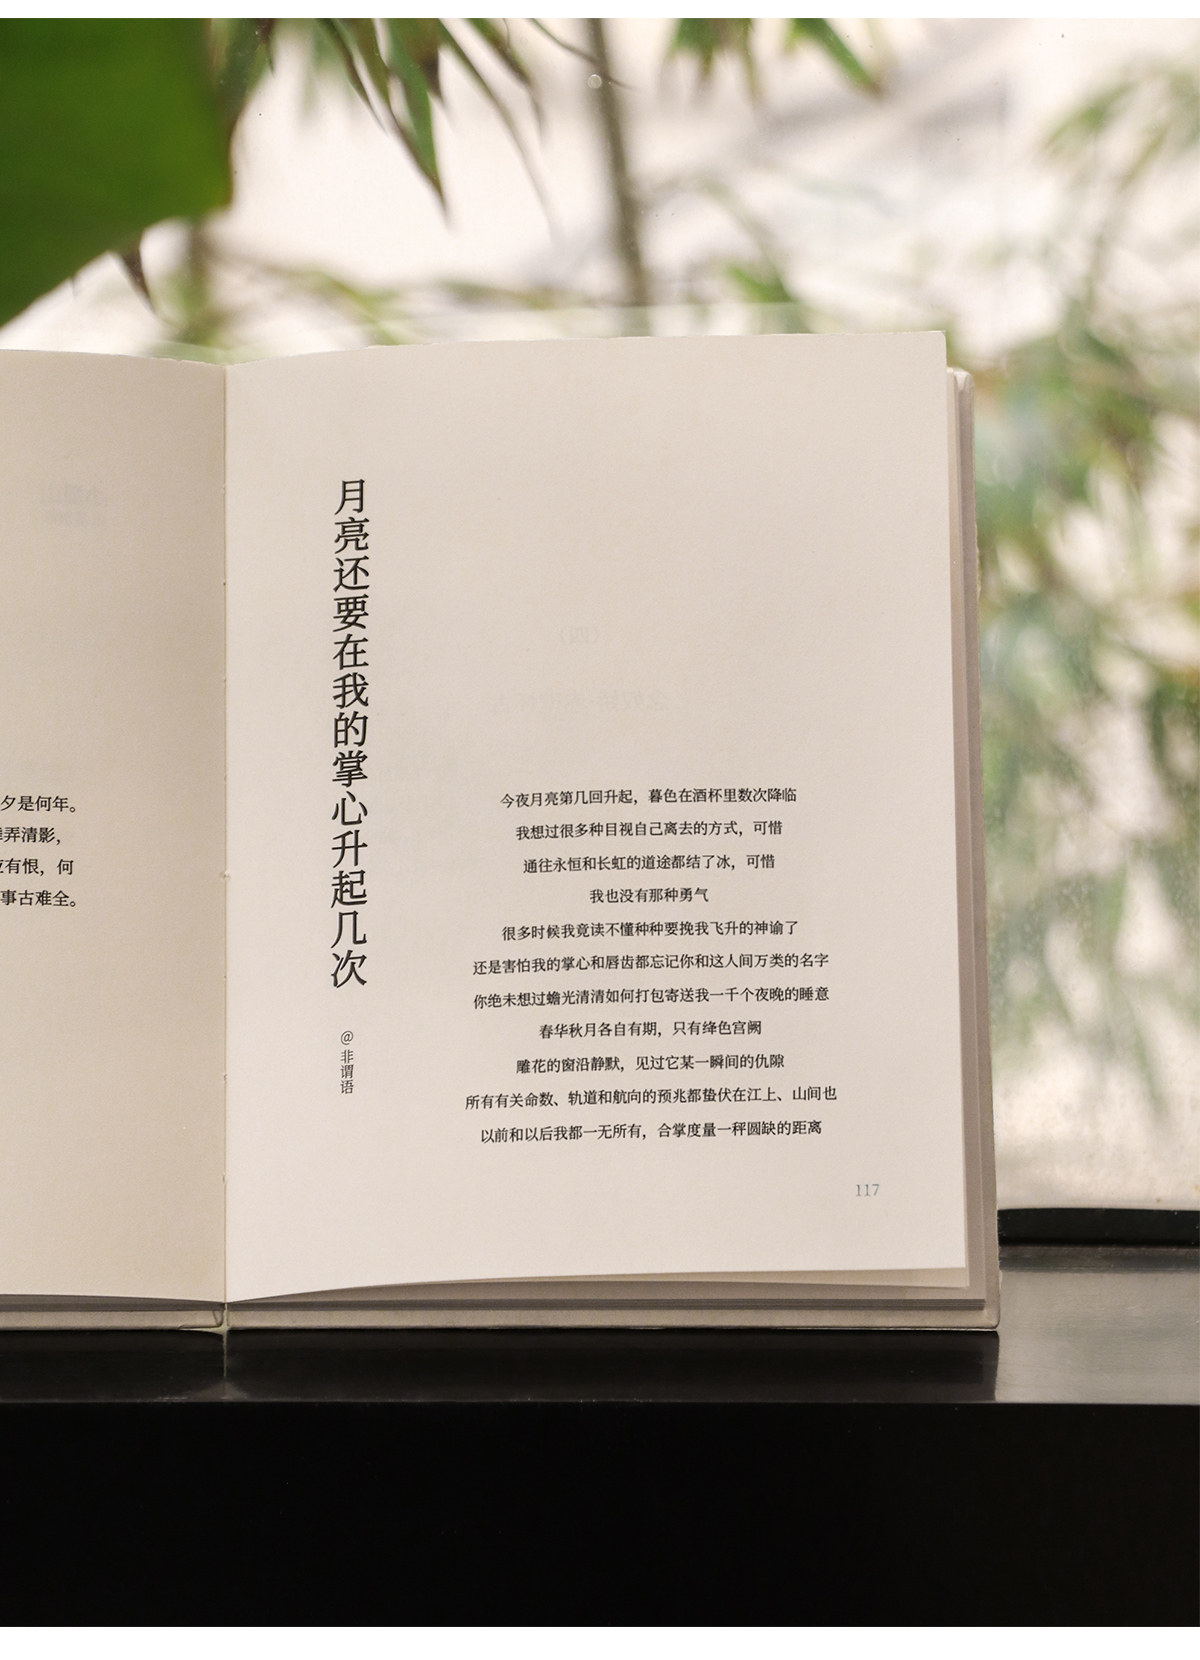 夕是何年。
弄清影，
有恨，何
事古难全。
月亮还要在我的掌心升起几次
@非谓语
今夜月亮第几回升起，暮色在酒杯里数次降临
我想过很多种目视自己离去的方式，可惜
通往永恒和长虹的道途都结了冰，可惜
我也没有那种勇气
很多时候我竟读不懂种种要挽我飞升的神谕了
还是害怕我的掌心和唇齿都忘记你和这人间万类的名字
你绝未想过蟾光清清如何打包寄送我一千个夜晚的睡意
春华秋月各自有期，只有绛色宫阙
雕花的窗沿静默，见过它某一瞬间的仇隙
所有有关命数、轨道和航向的预兆都蛰伏在江上、山间也
以前和以后我都一无所有，合掌度量一秤圆缺的距离
117